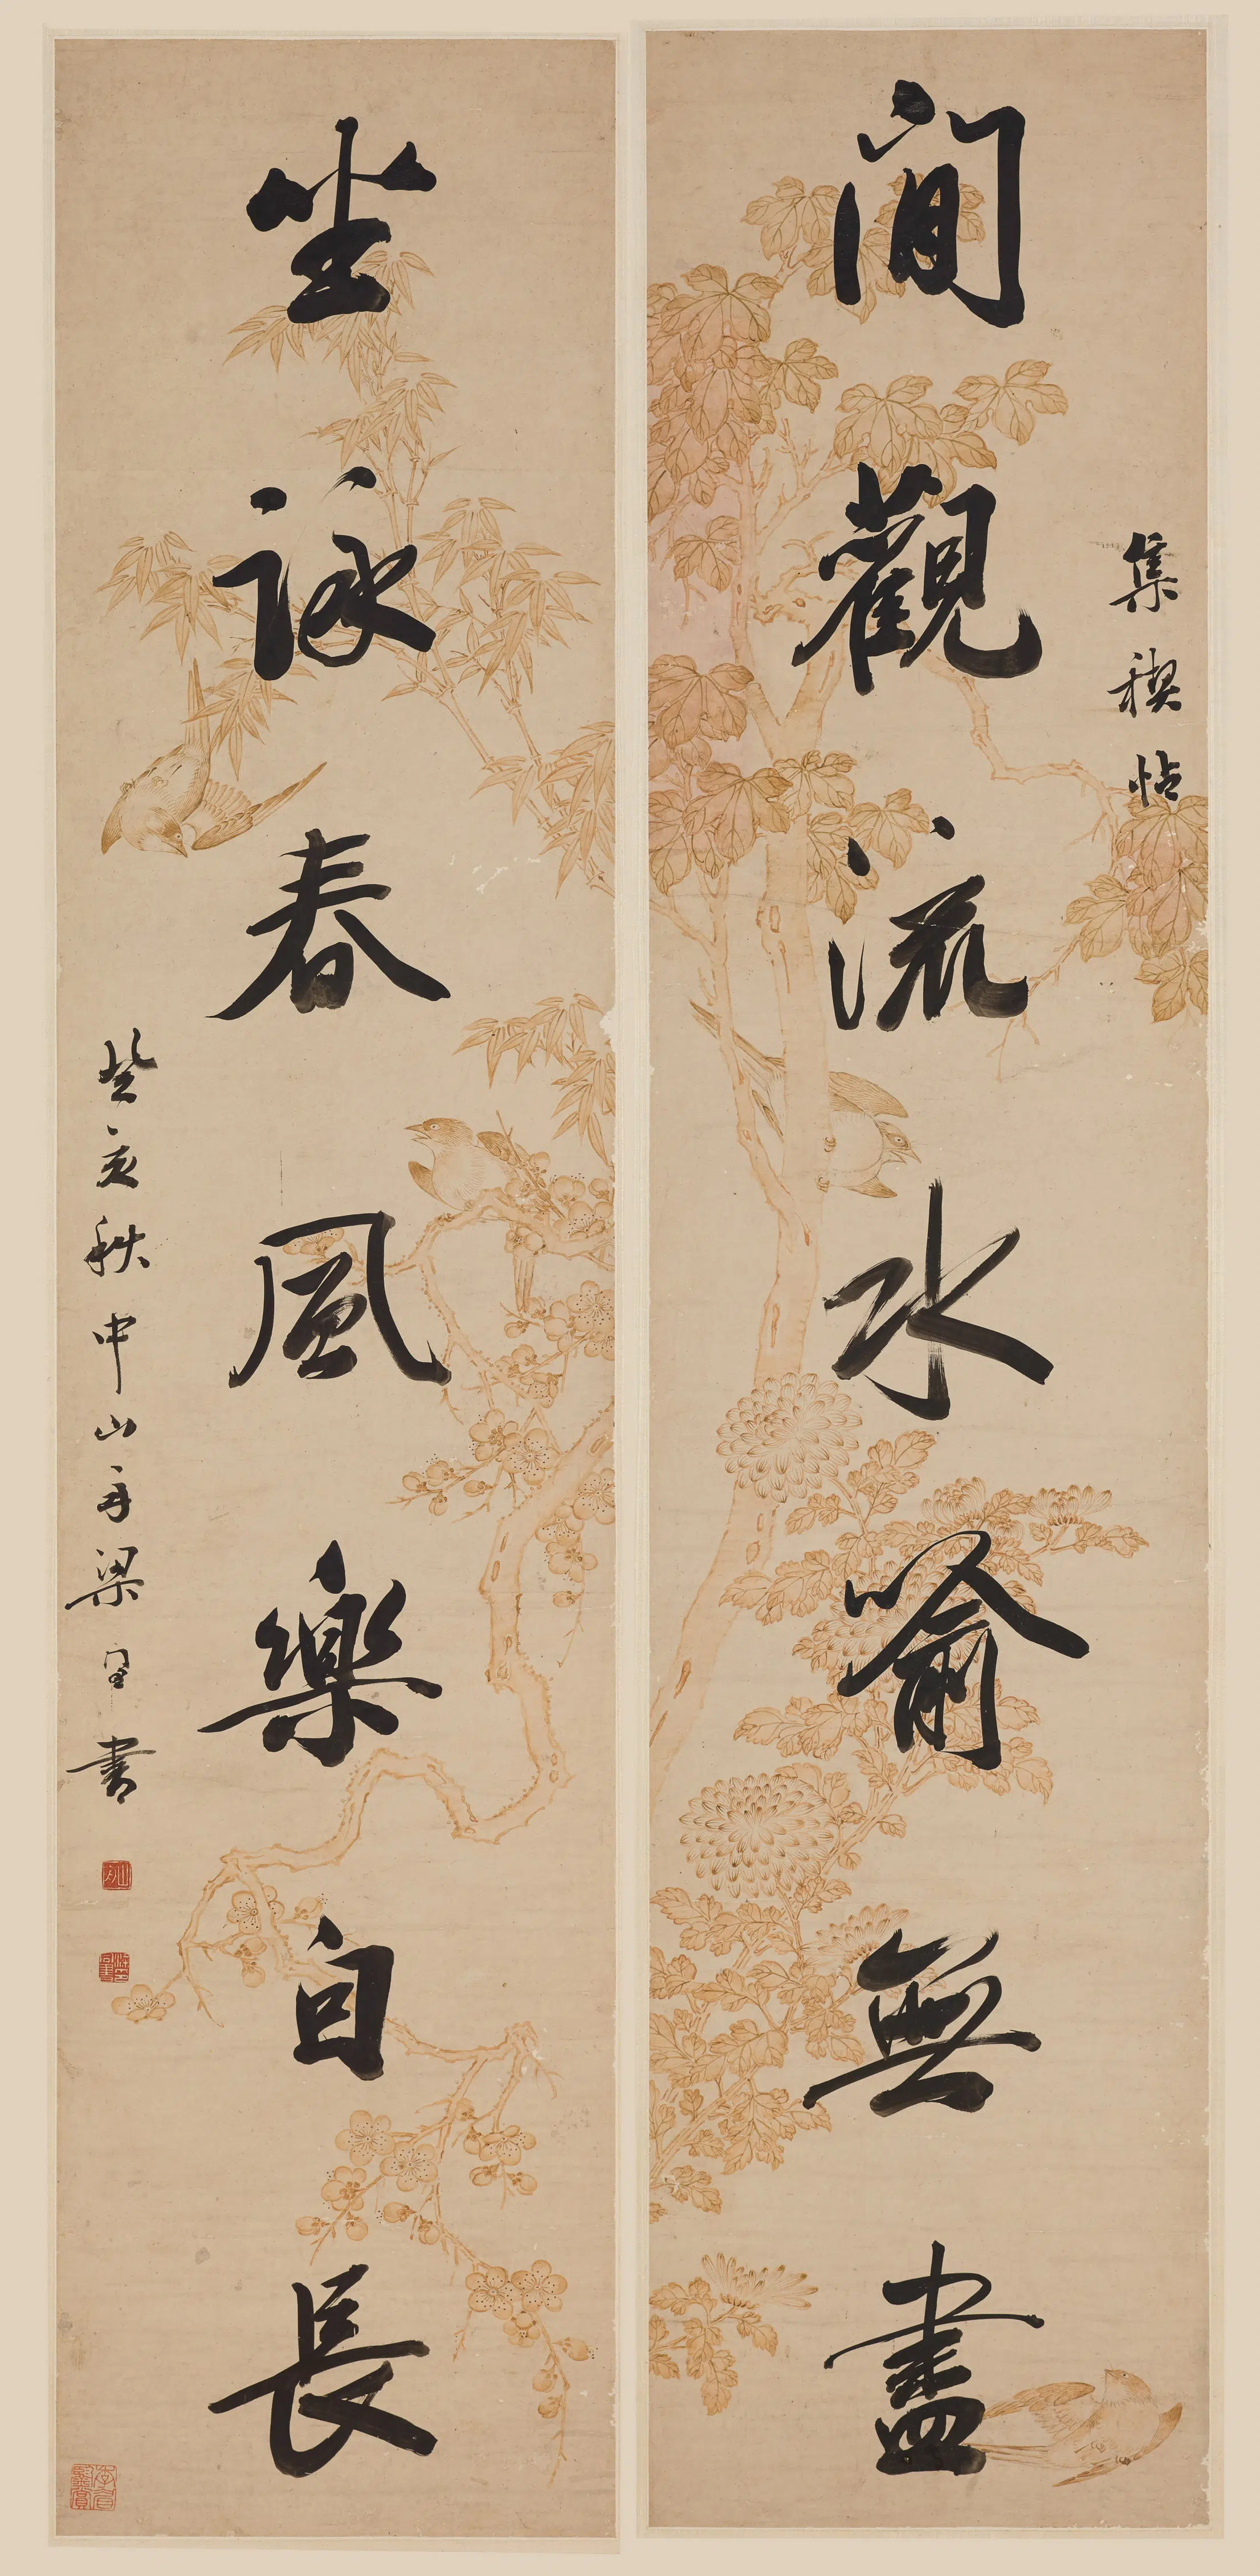 閒觀流水喻無盡
集稧帖
坐詠春風樂自長
癸亥秋中山舟梁同書